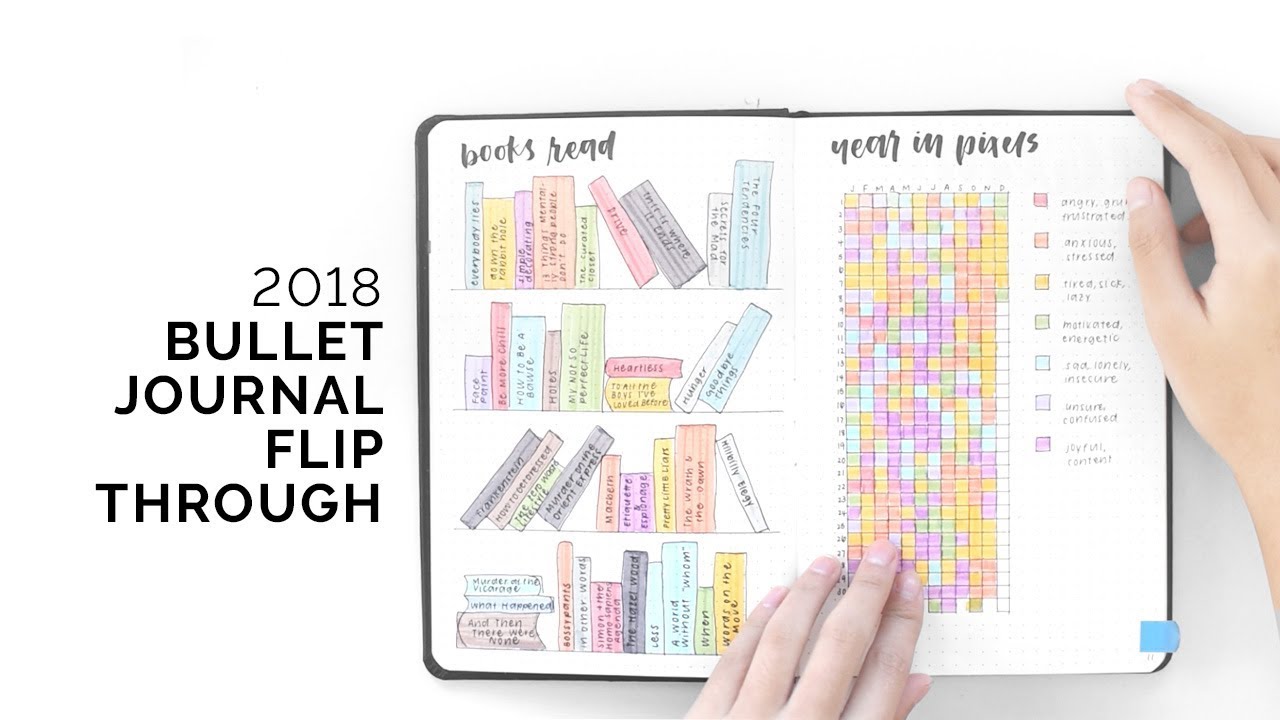 2018
BULLET
JOURNAL
FLIP
THROUGH
books read
everybody lies
down the
rabbit hole
simple
decorating
13 things mental-
ly strong people
don't do
the curated
closet
drive
this is where
it ends
secrets for
the mad
the four
tendencies
Face
Paint
Be More Chill
How to Be A
Bawse
Holes
My Not So
Perfect Life
Heartless
To All the
Boys I've
Loved Before
Hunger
Goodbye
Things
Frankenstein
How to be dressed
Lifestyle
Murder on the
Orient Express
Macbeth
Etiquette
&
Espionage
Pretty Little Liars
The Wrath &
the Dawn
Hillbilly Elegy
Murder at the
Vicarage
What Happened
And Then
There Were
None
Bossypants
In Other Words
Simon & the
Homo Sapiens
Agenda
The Hazel Wood
Less
A World
Without "Whom"
When
Words on the
Move
year in pixels
J F M A M J J A S O N D
1
2
3
4
5
6
7
8
9
10
11
12
13
14
15
16
17
18
19
20
21
22
23
24
25
26
27
30
angry,
frustrated
anxious,
stressed
tired, sick,
lazy
motivated,
energetic
sad, lonely,
insecure
unsure,
confused
joyful,
content
11